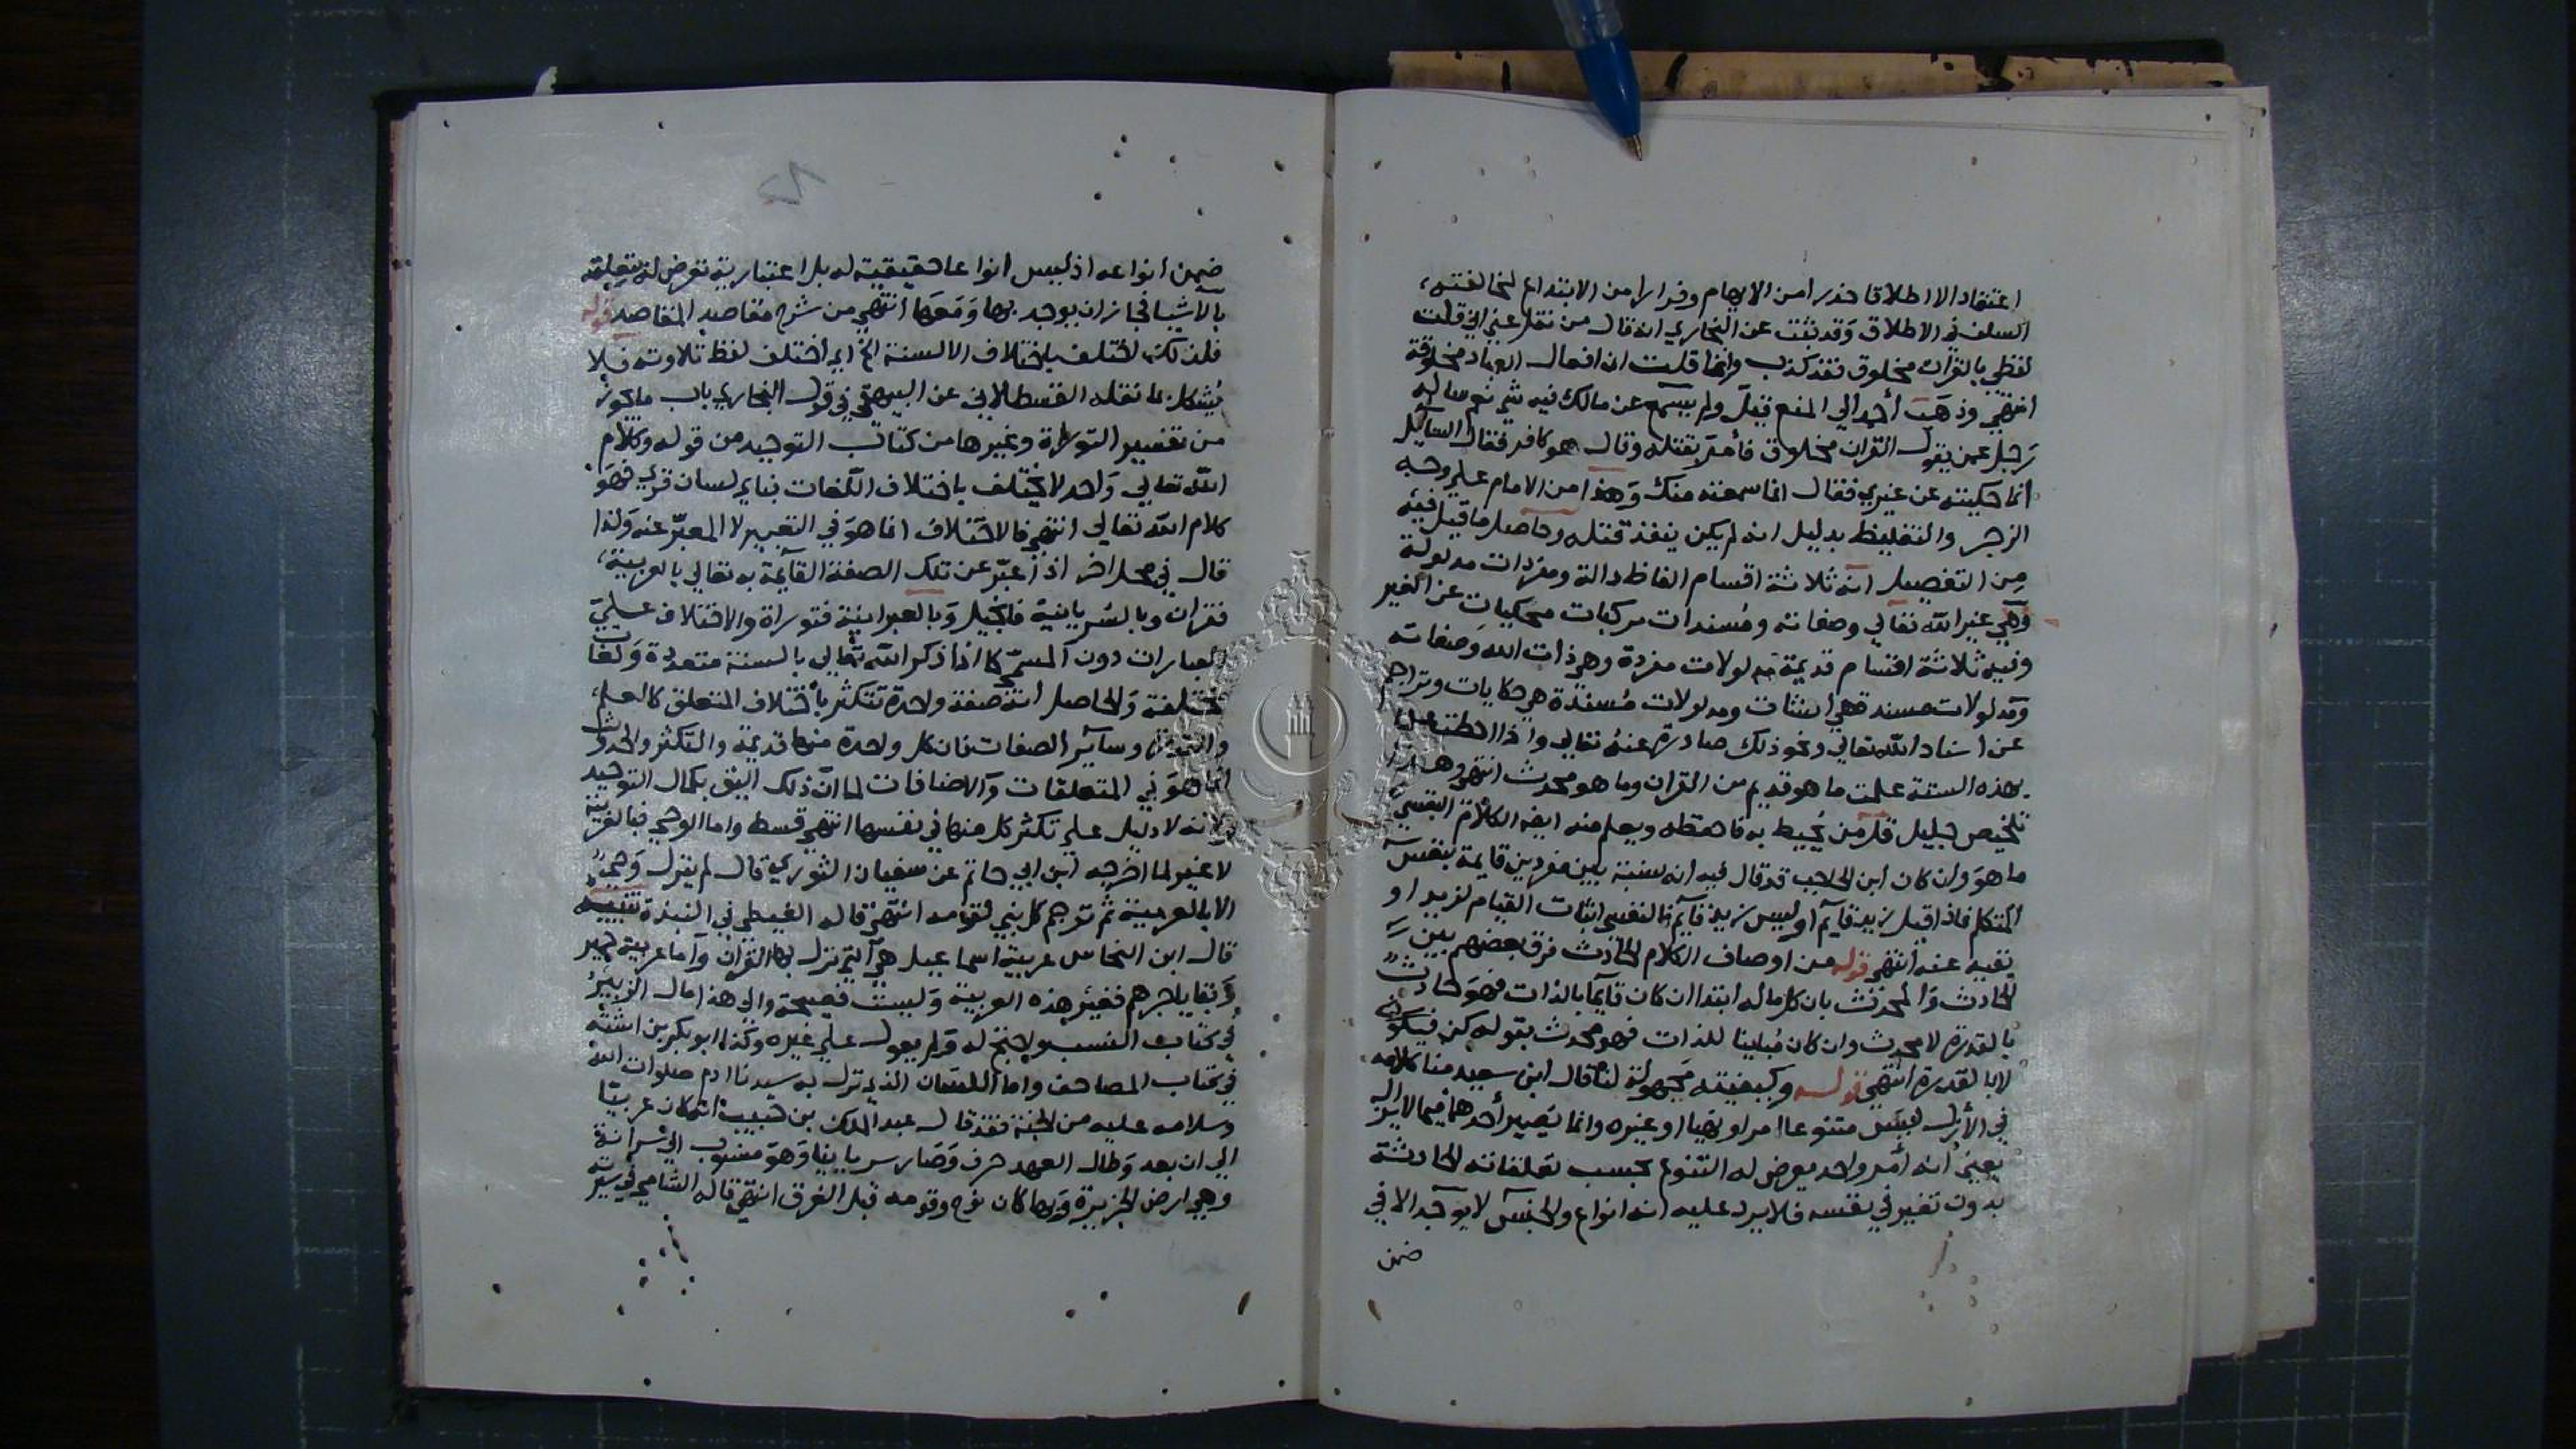 اعتقاد الاطلاق حذرا من الايهام وفرارا من الابتداع لمخالفته
السلف في الاطلاق وقد ثبت عن البخاري انه قال من نقل عني اني قلت
لفظي بالقران مخلوق فقد كذب وانما قلت ان افعال العباد مخلوقة
انتهى وذهب أحمد الي المنع قيل ولم يسمع عن مالك فيه شي نعم ساله
رجل عمن يقول القران مخلوق فأمر بقتله وقال هو كافر فقال السائل
انما حكيته عن غيري فقال انما سمعته منك وهذا من الامام علي وجه
الزجر والتغليظ بدليل انه لم يكن ينفذ قتله وحاصل ما قيل فيه
من التفصيل انه ثلاثة اقسام الفاظ دالة ومفردات مدلولة
وهي غير الله تعالي وصفاته ومسندات مركبات محكيات عن الغير
وفيه ثلاثة اقسام قديمة مدلولات مفردة وهو ذات الله وصفاته
ومدلولات مسندة هي انشات ومدلولات مسندة هي حكايات وتراجم
عن اسناد الله تعالي ونحو ذلك صادرة عنه تعالي واذا احطت علما
بهذه الستة علمت ما هو قديم من القران وما هو محدث انتهى وهذا
تلخيص جليل قل من يحيط به فاحفظه ويعلم منه ايضا الكلام النفسي
ما هو وان كان ابن الحاجب قد قال فيه انه نسبة بين مفردين قايمة بنفس
المتكلم فاذا قيل زيد قايم او ليس زيد قايم فالنفسي اثبات القيام لزيد او
نفيه عنه انتهى قوله من اوصاف الكلام الحادث فرق بعضهم بين
الحادث والمحدث بان كل ما له ابتدا ان كان قايما بالذات فهو حادث
بالقدرة لا محدث وان كان مباينا للذات فهو محدث بقوله كن فيكون
لا بالقدرة انتهى قوله وكيفيته مجهولة لنا قال ابن سعيد منا كلامه
في الأزل ليس متنوعا امرا او نهيا او غيره وانما يصير أحدهما فيما لايزال
يعني انه أمر واحد يعرض له التنوع بحسب تعلقاته الحادثة
بدون تغير في نفسه فلا يرد عليه انه انواع والجنس لا يوجد الا في
ضمن
ضمن انواعه اذ ليس انواعا حقيقية له بل اعتبارية تعرض له بتعلقه
بالاشيا فجاز ان يوجد بها ومعها انتهى من شرح مقاصد المقاصد قوله
فلذلك اختلف باختلاف الالسنة الخ اي اختلف لفظ تلاوته فلا
يشكل بما نقله القسطلاني عن البيهقي في قول البخاري باب ما يجوز
من تفسير التوراة وغيرها من كتاب التوحيد من قوله وكلام
الله تعالي واحد لا يختلف باختلاف اللغات فباي لسان قرئ فهو
كلام الله تعالي انتهى فالاختلاف انما هو في التعبير لا المعبر عنه ولذا
قال في محل اخر اذا عبر عن تلك الصفة القايمة به تعالي بالعربية
فقران وبالسريانية فانجيل وبالعبرانية فتوراة والاختلاف علي
العبارات دون المسمى كما اذا ذكر الله تعالي بالسنة متعددة ولغات
مختلفة والحاصل انه صفة واحدة تتكثر باختلاف المتعلق كالعلم
والقدرة وساير الصفات فان كل واحدة منها قديمة والتكثر والحدوث
انما هو في المتعلقات والاضافات لما ان ذلك اليق بكمال التوحيد
ولانه لا دليل علي تكثر كل منها في نفسها انتهى قسط واما الوحي فبالعربية
لا غير لما اخرجه ابن ابي حاتم عن سفيان الثوري قال لم ينزل وحي
الا بالعربية ثم ترجم كل نبي لقومه انتهى قاله الغيطي في النبذة تنبيه
قال ابن النحاس عربية اسماعيل هي التي نزل بها القران وأما عربية حمير
وبقايا جرهم فغير هذه العربية وليست فصيحة والي هذا مال الزبير
في كتاب النسب واحتج له ولم يعول علي غيره وكذا ابو بكر بن اشته
في كتاب المصاحف واما اللسان الذي نزل به سيدنا ادم صلوات الله
وسلامه عليه من الجنة فقد قال عبد الملك بن حبيب انه كان عربيا
الي ان بعد وطال العهد حرف وصار سريانيا وهو منسوب الي سرانة
وهي ارض الجزيرة وبها كان نوح وقومه قبل الغرق انتهى قاله الشامي في سيرته